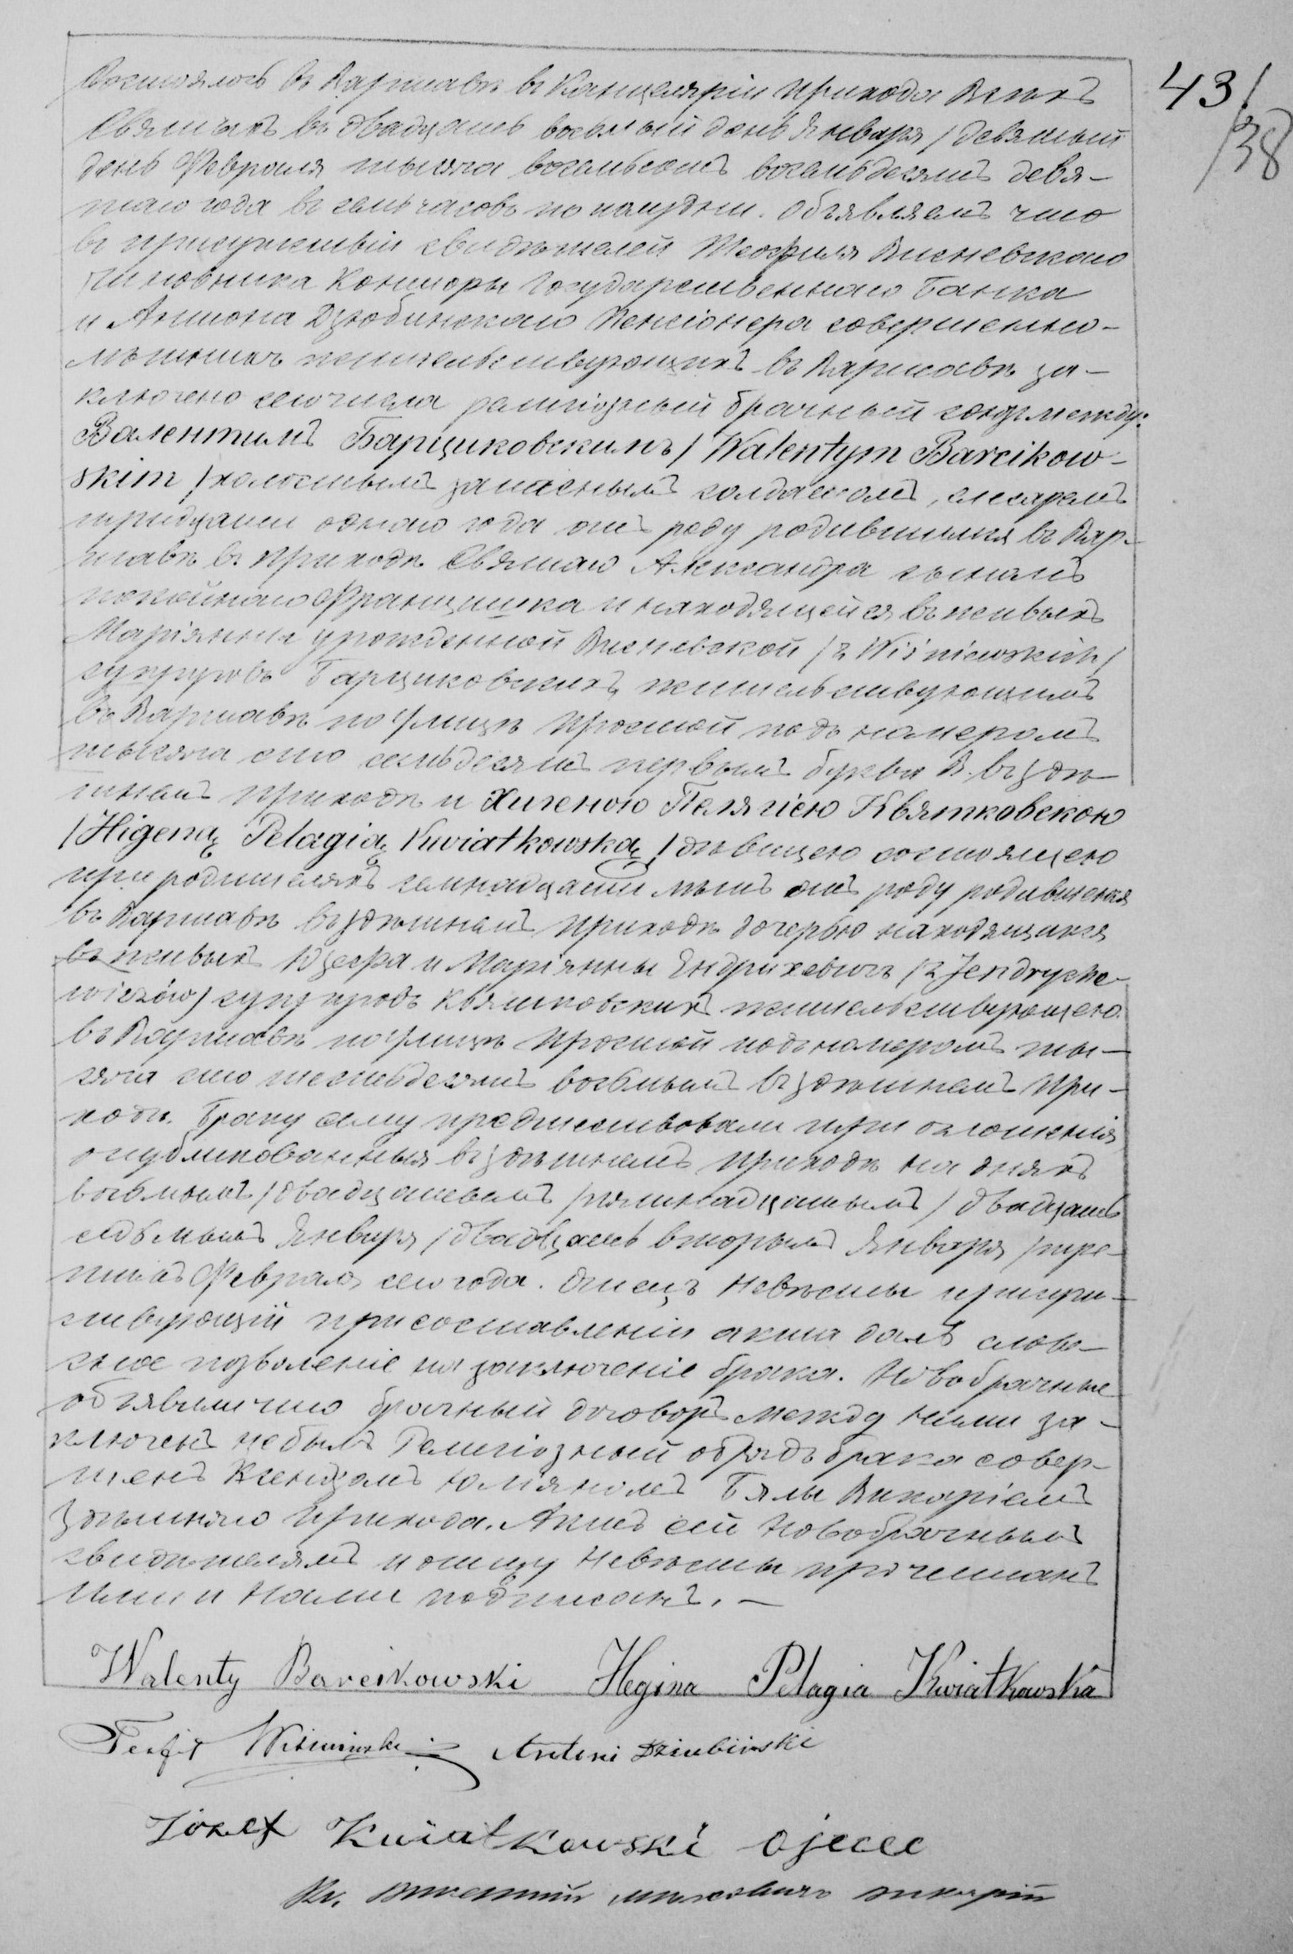 43/
/38
Состоялось въ Варшавѣ въ Канцеляріи прихода Всѣхъ
Святыхъ въ двадцать восьмый день Января / девятый
день Февраля тысяча восемьсотъ восемьдесятъ девя-
таго года въ семь часовъ по полудни. Объявляемъ что
въ присутствіи свидѣтелей Теофиля Висневскаго
чиновника Конторы Государственнаго Банка
и Антона Дзюбинскаго Пенсіонера совершенно-
лѣтнихъ жительствующихъ въ Варшавѣ за-
ключено сего числа религіозный брачный союзъ между:
Валентымъ Барциковскимъ / Walentym Barcikow-
skim / холостымъ запаснымъ солдатомъ, слесаремъ
тридцати одного года отъ роду родившимся въ Вар-
шавѣ въ приходѣ Святаго Александра сыномъ
покойнаго Францишка и находящейся въ живыхъ
Маріянны урожденной Висневской / z Wiśniewskich /
супруговъ Барциковскихъ жительствующимъ
въ Варшавѣ по улицѣ Простой подъ номеромъ
тысяча сто семьдесятъ первымъ буквы В. въ здѣ-
шнемъ приходѣ и Хигеною Пелягіею Квятковскою
/ Higeną Pelagią Kwiatkowską / дѣвицею состоящею
при родителяхъ семнадцати лѣтъ отъ роду родившеюся
въ Варшавѣ въ здѣшнемъ приходѣ дочерью находящихся
въ живыхъ Юзефа и Маріянны Ендрихевичъ / z Jendryche-
wiczów / супруговъ Квятковскихъ жительствующею
въ Варшавѣ по улицѣ Простой подъ номеромъ ты-
сяча сто шестьдесятъ восьмымъ въ здѣшнемъ при-
ходѣ. Браку сему предшествовали три оглашенія
опубликованныя въ здѣшнемъ приходѣ на дняхъ
восьмымъ / двадцатымъ / пятнадцатымъ / двадцать
седьмымъ Января / двадцать вторымъ Января / тре-
тьимъ Февраля сего года. Отецъ Невѣсты присут-
ствующій при составленіи акта далъ слове-
сное позволеніе на заключеніе брака. Новобрачные
объявили что брачный договоръ между ними за-
ключенъ не былъ Религіозный обрядъ брака совер-
шенъ Ксендзомъ Юліяномъ Бялы Викаріемъ
здѣшняго прихода. Актъ сей Новобрачнымъ
свидѣтелямъ и отцу Невѣсты прочитанъ
Ими и Нами подписанъ. —
Walenty Barcikowski Hegina Pelagia Kwiatkowska
Teofil Wiśniewski Antoni Dziubiński
Józef Kwiatkowski ojcec
Кс. викарій